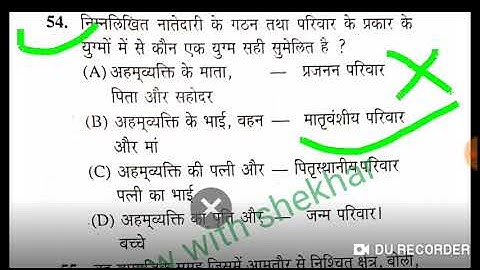 54. निम्नलिखित नातेदारी के गठन तथा परिवार के प्रकार के
युग्मों में से कौन एक युग्म सही सुमेलित है ?
(A) अहम्‌व्यक्ति के माता, — प्रजनन परिवार
पिता और सहोदर
(B) अहम्‌व्यक्ति के भाई, वहन — मातृवंशीय परिवार
और मां
(C) अहम्‌व्यक्ति की पत्नी और — पितृस्थानीय परिवार
पत्नी का भाई
(D) अहम्‌व्यक्ति का पति और — जन्म परिवार।
बच्चे
with shekhar
DU RECORDER
जिसमें आमतौर से निश्चित क्षेत्र, बोली,